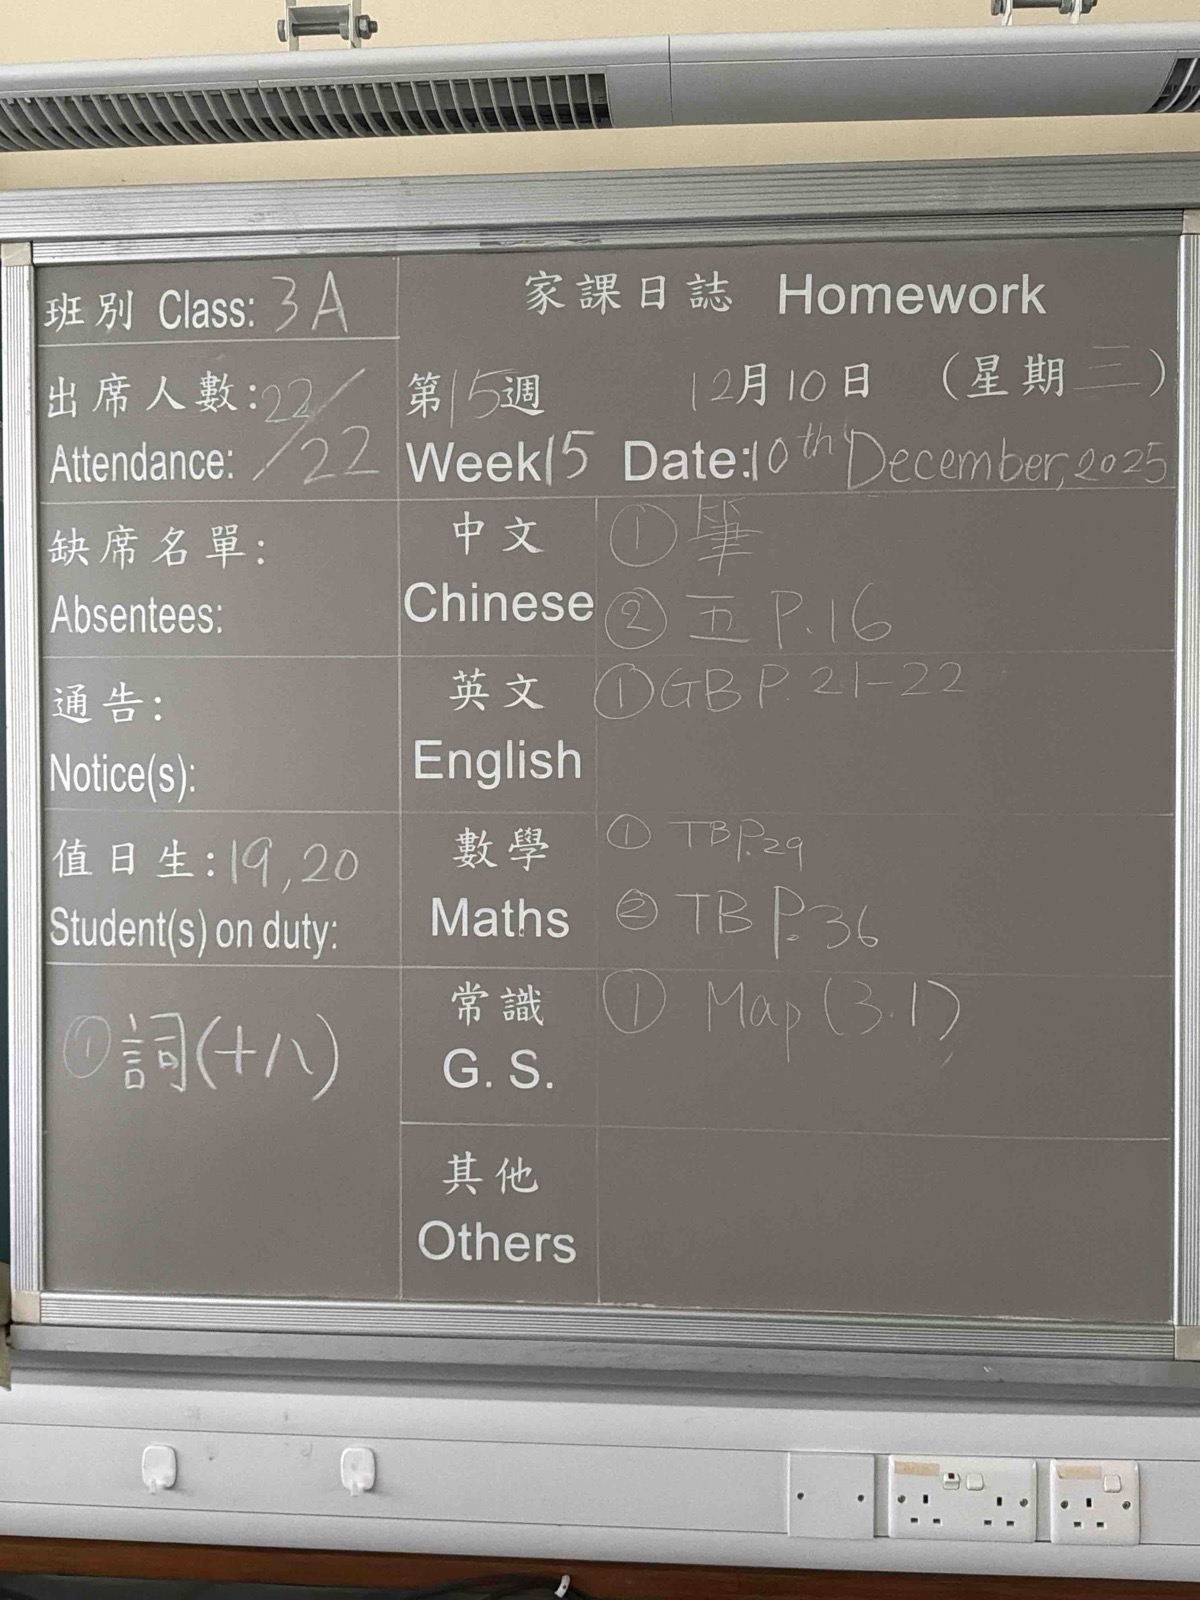 班別 Class: 3A
家課日誌 Homework
出席人數: 22/
Attendance: /22
第15週 12月10日 (星期三)
Week 15 Date: 10th December, 2025
缺席名單:
Absentees:
中文 ① 筆
Chinese ② 五 P.16
通告:
Notice(s):
英文 ① GB P. 21-22
English
值日生: 19, 20
Student(s) on duty:
數學 ① TB P.29
Maths ② TB P.36
① 詞(十八)
常識 ① Map (3.1)
G. S.
其他
Others